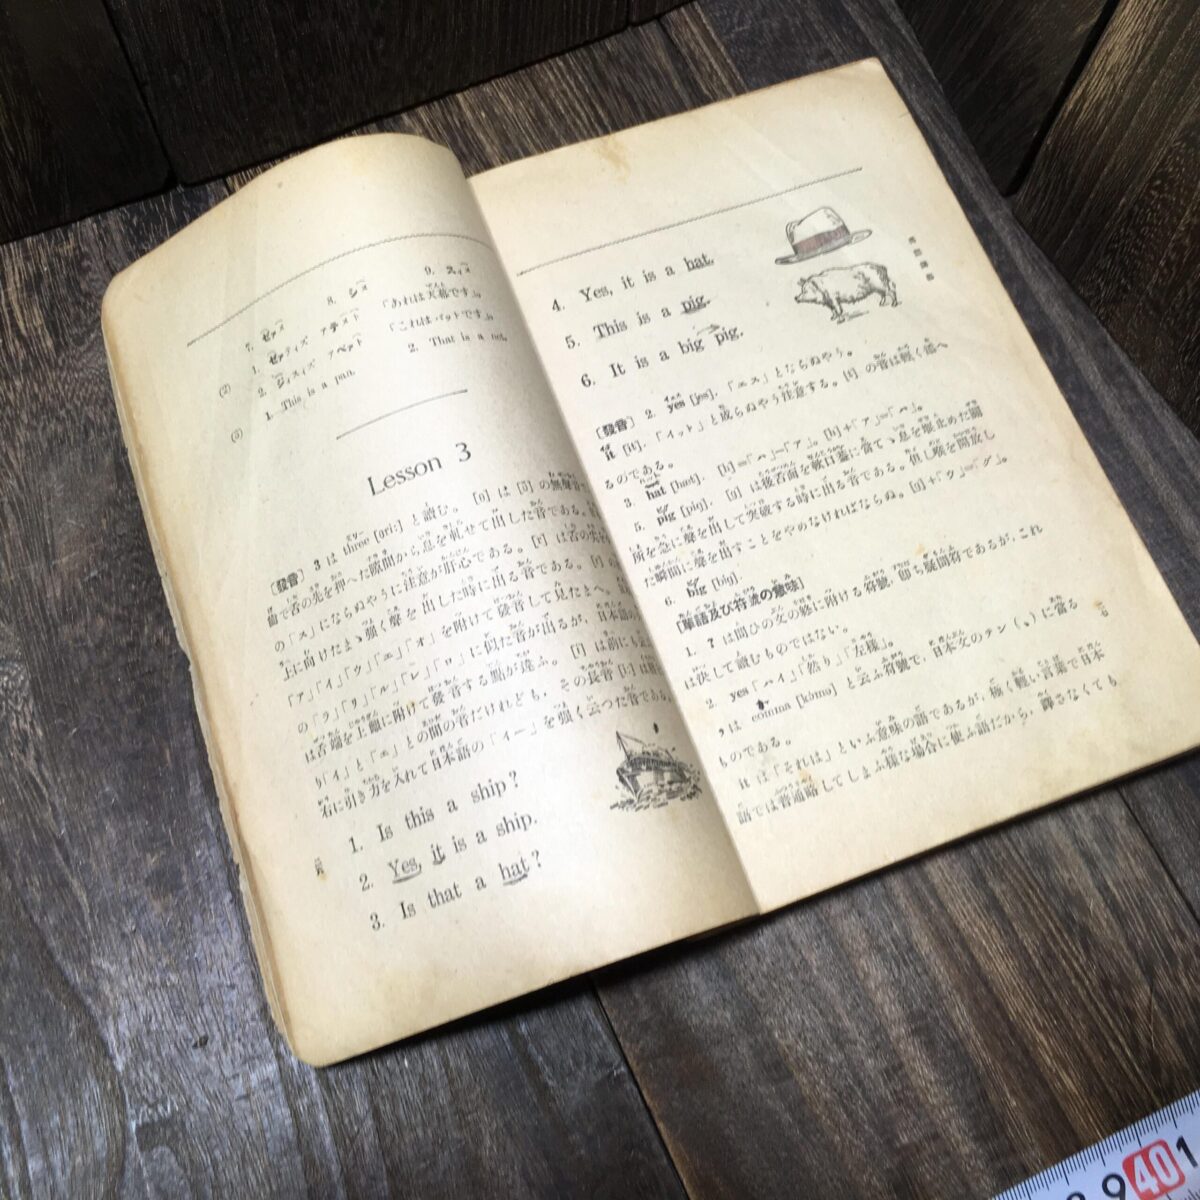 7. ゼァヌ 8. シヌ 9. スィヌ
(2) 1. ゼァティズ アテヌト 「あれは天幕です」。
2. ジィスィズ アペァト 「これはパットです」。
(3) 1. This is a pan. 2. That is a net.
Lesson 3
[發音] 3 は three [θri:] と讀む。 [θ] は [ð] の無聲音で
節で舌の先を押へた隙間から息を軋せて出した音である。
の「ス」にならぬやうに注意が肝心である。 [r] は舌の先を
上に向けたまゝ强く聲を出した時に出る音である。 [r] の
「ア」「イ」「ウ」「エ」「オ」を附けて發音して見たまへ。
の「ラ」「リ」「ル」「レ」「ロ」に似た音が出るが、日本語の
は舌端を上顎に附けて發音する點が違ふ。 [i] は前にも
り「イ」と「エ」との間の音だけれども、その長音 [i:] は
右に引き力を入れて日本語の「イー」を强く云つた音である。
1. Is this a ship?
2. Yes, it is a ship.
3. Is that a hat?
4. Yes, it is a hat.
5. This is a pig.
6. It is a big pig.
[發音] 2. yes [jes]. 「エス」とならぬやう。
it [it]. 「イット」と成らぬやう注意する。 [t] の音は輕く添へ
るのである。
3. hat [hæt]. [h]=「ハ」−「ア」。 [h]+「ア」=「ハ」。
5. pig [pig]. [g] は後舌面を軟口蓋に當てゝ息を堰止めた關
所を急に聲を出して突破する時に出る音である。但し喉を開放し
た瞬間に聲を出すことをやめなければならぬ。 [g]+「ウ」=「グ」。
6. big [big].
[單語及び符號の意味]
1. ? は問ひの文の終に附ける符號、卽ち疑問符であるが、これ
は決して讀むものではない。
2. yes 「ハイ」「然り」「左樣」。
, は comma [kómə] と云ふ符號で、日本文のテン(、)に當る
ものである。
it は「それは」といふ意味の語であるが、極く輕い言葉で日本
語では普通略してしまふ樣な場合に使ふ語だから、譯さなくても
9 40 1